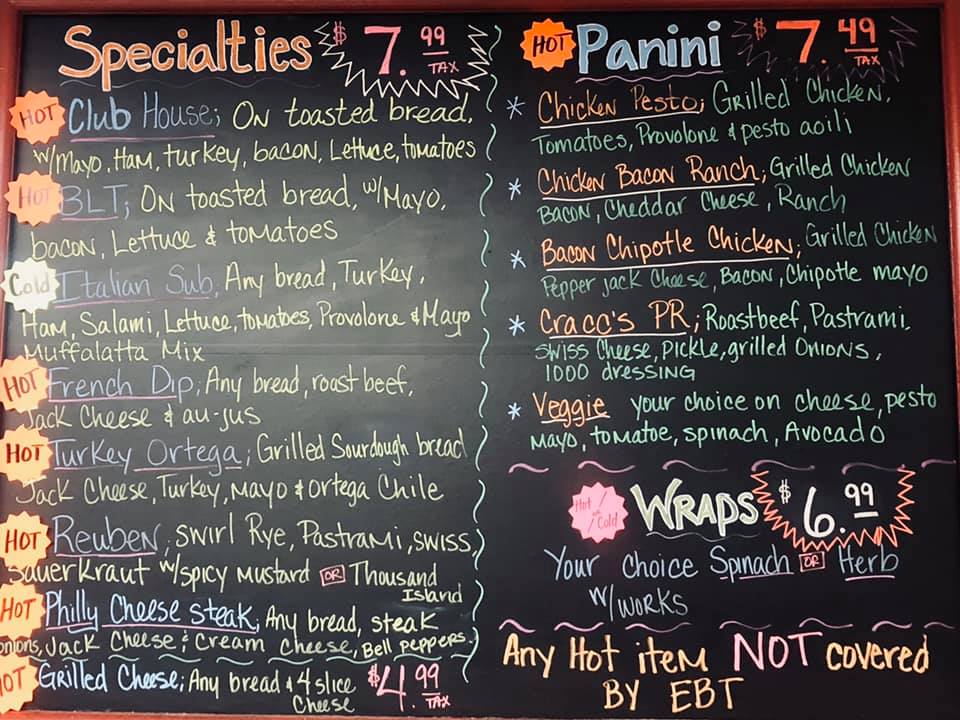 Specialties $7.99 TAX
HOT Club House; ON toasted bread,
w/Mayo, Ham, turkey, bacon, Lettuce, tomatoes
HOT BLT; ON toasted bread, w/Mayo,
bacon, Lettuce & tomatoes
Cold Italian Sub, Any bread, Turkey,
Ham, Salami, Lettuce, tomatoes, Provolone & Mayo
Muffalatta Mix
HOT French Dip; Any bread, roast beef,
Jack Cheese & au-jus
HOT Turkey Ortega; Grilled Sourdough bread
Jack Cheese, Turkey, mayo & Ortega Chile
HOT Reuben, swirl Rye, Pastrami, swiss,
Sauerkraut w/spicy mustard OR Thousand
Island
HOT Philly Cheese steak, Any bread, steak
onions, Jack Cheese & Cream Cheese, Bell peppers.
HOT Grilled Cheese; Any bread & 4 slice $4.99 TAX
Cheese
HOT Panini $7.49 TAX
* Chicken Pesto; Grilled Chicken,
Tomatoes, Provolone & pesto aoili
* Chicken Bacon Ranch; Grilled Chicken
Bacon, Cheddar Cheese, Ranch
* Bacon Chipotle Chicken; Grilled Chicken
Pepper jack Cheese, Bacon, Chipotle mayo
* Cracc's PR; Roastbeef, Pastrami,
swiss Cheese, pickle, grilled Onions,
1000 dressing
* Veggie your choice on cheese, pesto
mayo, tomatoe, spinach, Avocado
Hot / or / Cold WRAPS $6.99
Your choice Spinach OR Herb
w/works
Any Hot item NOT covered
BY EBT